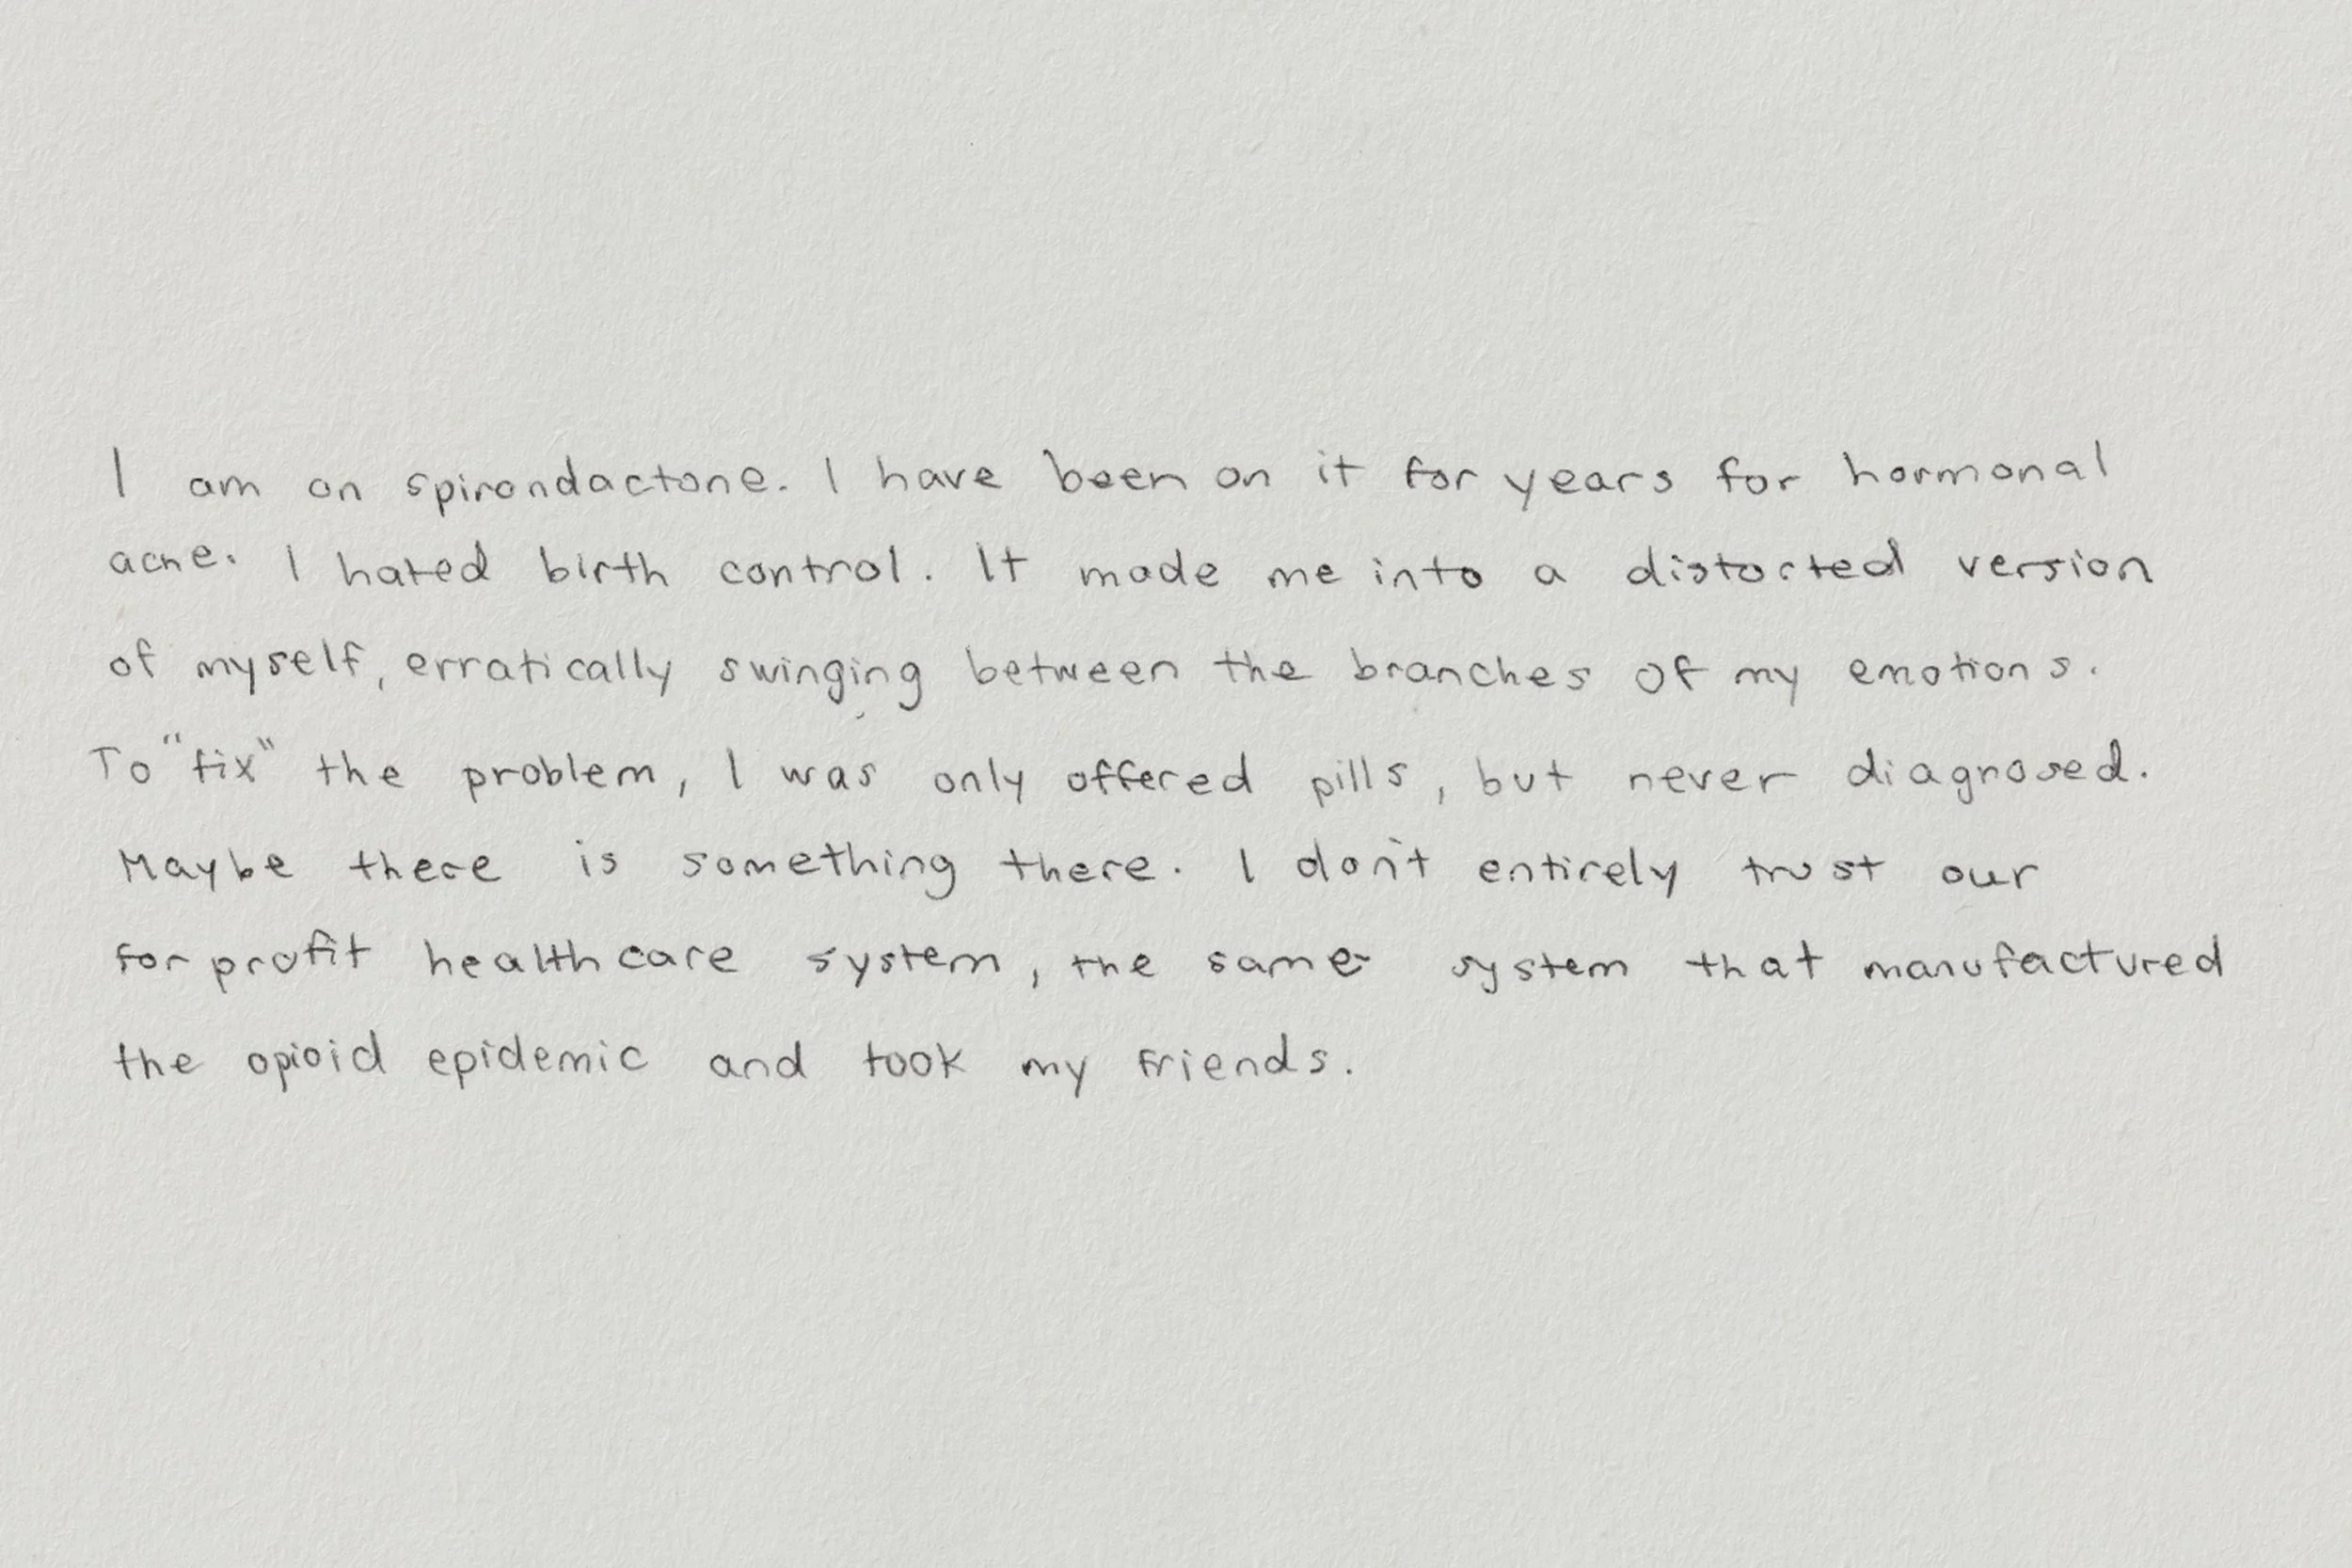 I am on spirondactone. I have been on it for years for hormonal
acne. I hated birth control. It made me into a distorted version
of myself, erratically swinging between the branches of my emotions.
To "fix" the problem, I was only offered pills, but never diagnosed.
Maybe there is something there. I don't entirely trust our
for profit healthcare system, the same system that manufactured
the opioid epidemic and took my friends.